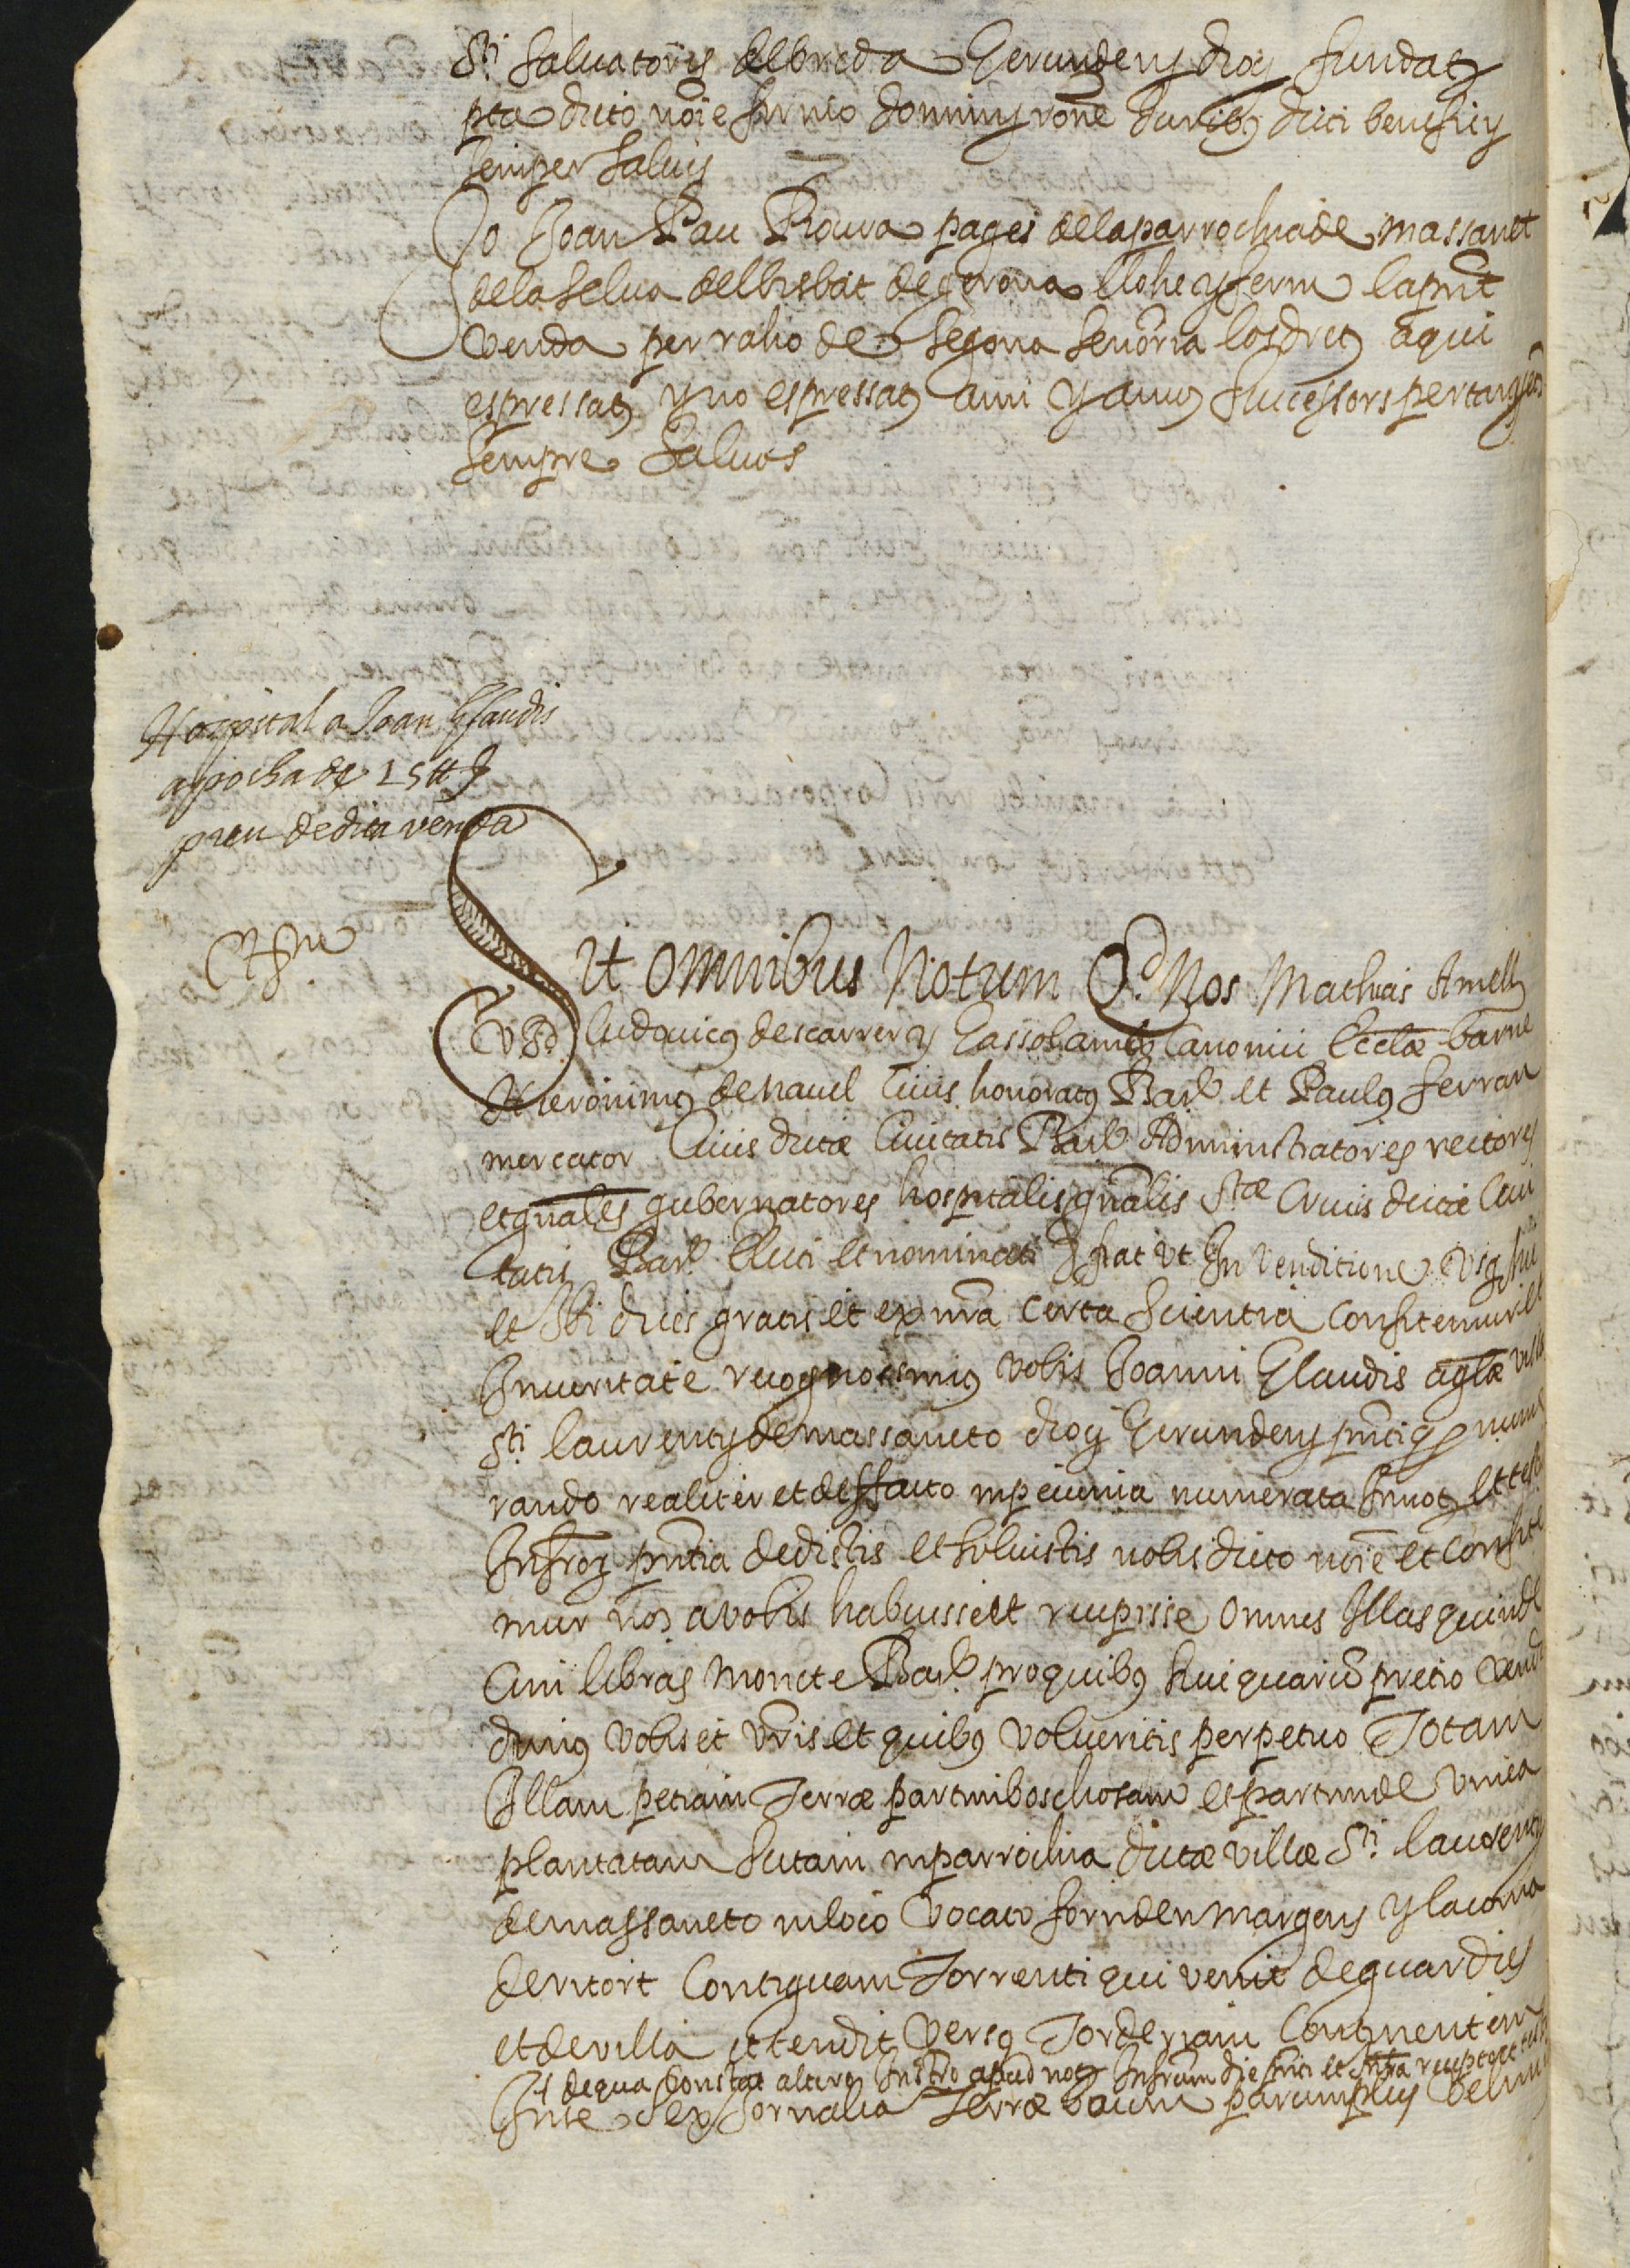 Sti Salvatoris de breda Gerunden dioc fundat
pta dicto noie firmo dominy rone Juribs dicti beneficy
semper salvis
Jo Joan Pau Roura pages de la parrochia de massanet
de la selva del bisbat de gerona llohe y ferm la prnt
venda per raho de segona senoria los drets a qui
espressats y no espressats a mi y a mos successors pertanyents
sempre salvos
Hospital a Joan Glaudis
apocha de 15 ll
preu de dita venda
Sit omnibus Notum Qd Nos Mathias Amell
V J D Ludovicus descarreras Gassol ambo Canonici Ecclæ barne
Hieronimus de navel Civis honoratus Bar et Paulus ferran
mercator Civis dictæ Civitatis Bar Administratores rectores
et gnales gubernatores hospitalis gnalis Stæ Crucis dictæ Civi
tatis Bar Electi et nominati Pro ut in venditione
et Sti dicis gratis et ex nra certa scientia confitemur et
In veritate recognoscimus vobis Joanni Glaudis aglæ villæ
Sti laurenty de massaneto dioc Gerunden pnti qs nume
rando realiter et de ffacto in pecunia numerata Innot et test
Infror pntia dedistis et solvistis nobis dicto noie et confite
mur nos a vobis habuisse et recepisse omnes Illas quinde
cim libras Monete Bar pro quibus sive quarum pretio vendi
dimus vobis et vris et quibus volueritis perpetuo Totam
Illam petiam Terræ partim boschosam et partim de vinea
plantatam sitam in parrochia dictæ villæ Sti laureny
de massaneto in loco vocato forn den margens y la coma
den tort Contiguam Torrenti qui venit de guardies
et de villa et tendit versus Torderiam Continentem
+ de qua constat altero Instro apud not Infrum die
Inse sex Jornalia Terræ parum plus vel minus